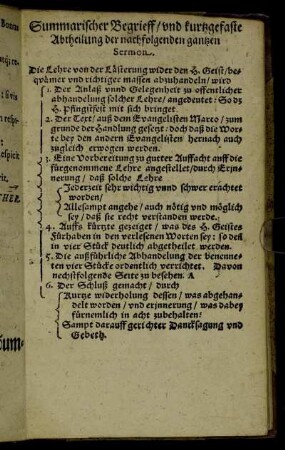 Bonus
THER.
Sum-
Summarischer Begrieff/ vnd kurtzgefaste
Abtheilung der nachfolgenden gantzen
Sermon.
Die Lehre von der Lästerung wider den H. Geist/ be-
qvämer vnd richtiger massen abzuhandeln/ wird
1. Der Anlaß vnnd Gelegenheit zu offentlicher
abhandelung solcher Lehre/ angedeutet: So dz
H. Pfingstfest mit sich bringet.
2. Der Text/ auß dem Evangelisten Marco/ zum
grunde der Handlung gesetzt/ doch daß die Wor-
te bey den andern Evangelisten hernach auch
zugleich erwogen werden.
3. Eine Vorbereitung zu gutter Auffacht auff die
fürgenommene Lehre angestellet/ durch Erin-
nerung/ daß solche Lehre
Jederzeit sehr wichtig vnnd schwer erachtet
worden/
Allesampt angehe/ auch nötig vnd möglich
sey/ daß sie recht verstanden werde.
4. Auffs kürtzte gezeiget/ was des H. Geistes
Fürhaben in den verlesenen Worten sey: so deñ
in vier Stück deutlich abgetheilet werden.
5. Die außführliche Abhandelung der benenne-
ten vier Stücke ordentlich verrichtet. Davon
nechstfolgende Seite zu besehen. A
6. Der Schluß gemacht/ durch
Kurtze widerholung dessen/ was abgehan-
delt worden/ vnd erinnerung/ was dabey
fürnemlich in acht zubehalten/
Sampt darauff gerichter Dancksagung vnd
Gebetz.